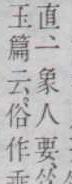 直一象人要
玉篇云俗作